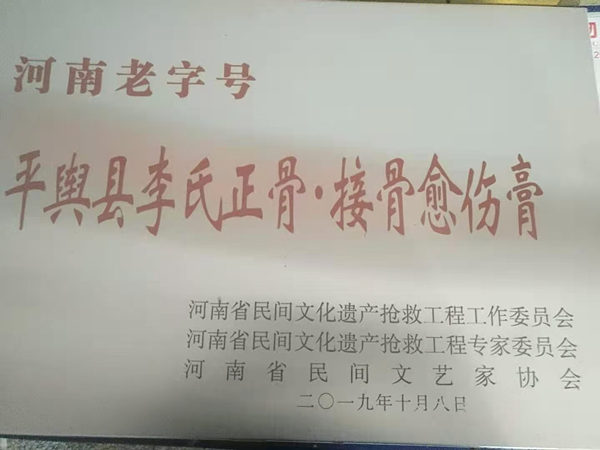 河南老字号
平舆县李氏正骨·接骨愈伤膏
河南省民间文化遗产抢救工程工作委员会
河南省民间文化遗产抢救工程专家委员会
河南省民间文艺家协会
二〇一九年十月八日